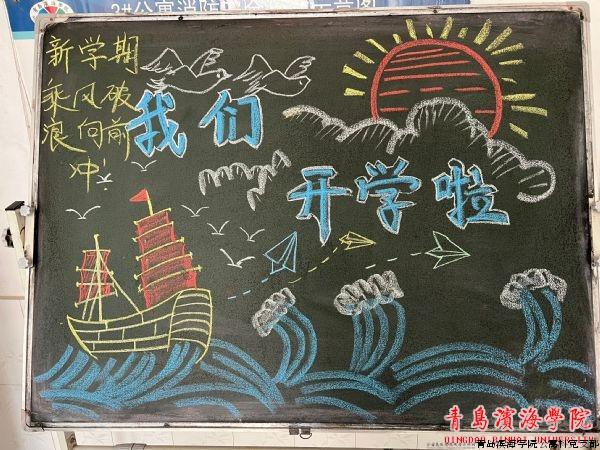 新学期
乘风破
浪向前
冲!
我们
开学啦
青岛滨海学院
QINGDAO BINHAI UNIVERSITY
青岛滨海学院公寓科党支部